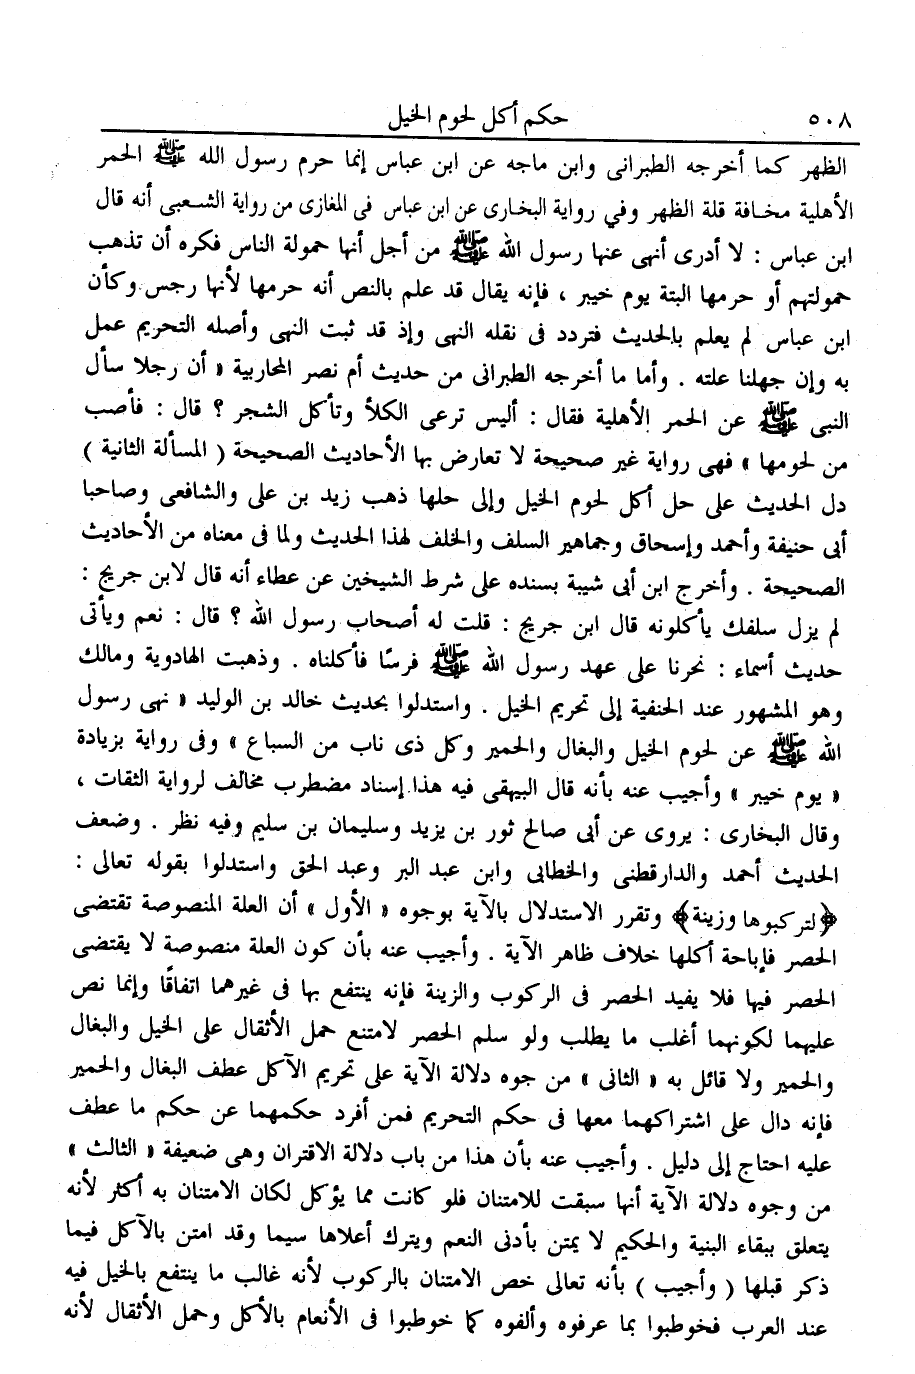 ٥٠٨ حكم أكل لحوم الخيل
الظهر كما أخرجه الطبرانى وابن ماجه عن ابن عباس إنما حرم رسول الله ﷺ الحمر
الأهلية مخافة قلة الظهر وفي رواية البخارى عن ابن عباس فى المغازى من رواية الشعبى أنه قال
ابن عباس : لا أدرى أنهى عنها رسول الله ﷺ من أجل أنها حمولة الناس فكره أن تذهب
حمولتهم أو حرمها البتة يوم خيبر ، فإنه يقال قد علم بالنص أنه حرمها لأنها رجس وكأن
ابن عباس لم يعلم بالحديث فتردد فى نقله النهى وإذ قد ثبت النهى وأصله التحريم عمل
به وإن جهلنا علته . وأما ما أخرجه الطبرانى من حديث أم نصر المحاربية « أن رجلا سأل
النبى ﷺ عن الحمر الأهلية فقال : أليس ترعى الكلأ وتأكل الشجر ؟ قال : فأصب
من لحومها » فهى رواية غير صحيحة لا تعارض بها الأحاديث الصحيحة ( المسألة الثانية )
دل الحديث على حل أكل لحوم الخيل وإلى حلها ذهب زيد بن على والشافعى وصاحبا
أبى حنيفة وأحمد وإسحاق وجماهير السلف والخلف لهذا الحديث ولما فى معناه من الأحاديث
الصحيحة . وأخرج ابن أبى شيبة بسنده على شرط الشيخين عن عطاء أنه قال لابن جريج :
لم يزل سلفك يأكلونه قال ابن جريج : قلت له أصحاب رسول الله ؟ قال : نعم ويأتى
حديث أسماء : نحرنا على عهد رسول الله ﷺ فرسًا فأكلناه . وذهبت الهادوية ومالك
وهو المشهور عند الحنفية إلى تحريم الخيل . واستدلوا بحديث خالد بن الوليد « نهى رسول
الله ﷺ عن لحوم الخيل والبغال والحمير وكل ذى ناب من السباع » وفى رواية بزيادة
« يوم خيبر » وأجيب عنه بأنه قال البيهقى فيه هذا إسناد مضطرب مخالف لرواية الثقات ،
وقال البخارى : يروى عن أبى صالح ثور بن يزيد وسليمان بن سليم وفيه نظر . وضعف
الحديث أحمد والدارقطنى والخطابى وابن عبد البر وعبد الحق واستدلوا بقوله تعالى :
﴿لتركبوها وزينة﴾ وتقرر الاستدلال بالآية بوجوه « الأول » أن العلة المنصوصة تقتضى
الحصر فإباحة أكلها خلاف ظاهر الآية . وأجيب عنه بأن كون العلة منصوصة لا يقتضى
الحصر فيها فلا يفيد الحصر فى الركوب والزينة فإنه ينتفع بها فى غيرهما اتفاقًا وإنما نص
عليهما لكونهما أغلب ما يطلب ولو سلم الحصر لامتنع حمل الأثقال على الخيل والبغال
والحمير ولا قائل به « الثانى » من جوه دلالة الآية على تحريم الآكل عطف البغال والحمير
فإنه دال على اشتراكهما معها فى حكم التحريم فمن أفرد حكمهما عن حكم ما عطف
عليه احتاج إلى دليل . وأجيب عنه بأن هذا من باب دلالة الاقتران وهى ضعيفة « الثالث »
من وجوه دلالة الآية أنها سبقت للامتنان فلو كانت مما يؤكل لكان الامتنان به أكثر لأنه
يتعلق ببقاء البنية والحكيم لا يمتن بأدنى النعم ويترك أعلاها سيما وقد امتن بالآكل فيما
ذكر قبلها ( وأجيب ) بأنه تعالى خص الامتنان بالركوب لأنه غالب ما ينتفع بالخيل فيه
عند العرب فخوطبوا بما عرفوه وألفوه كما خوطبوا فى الأنعام بالأكل وحمل الأثقال لأنه